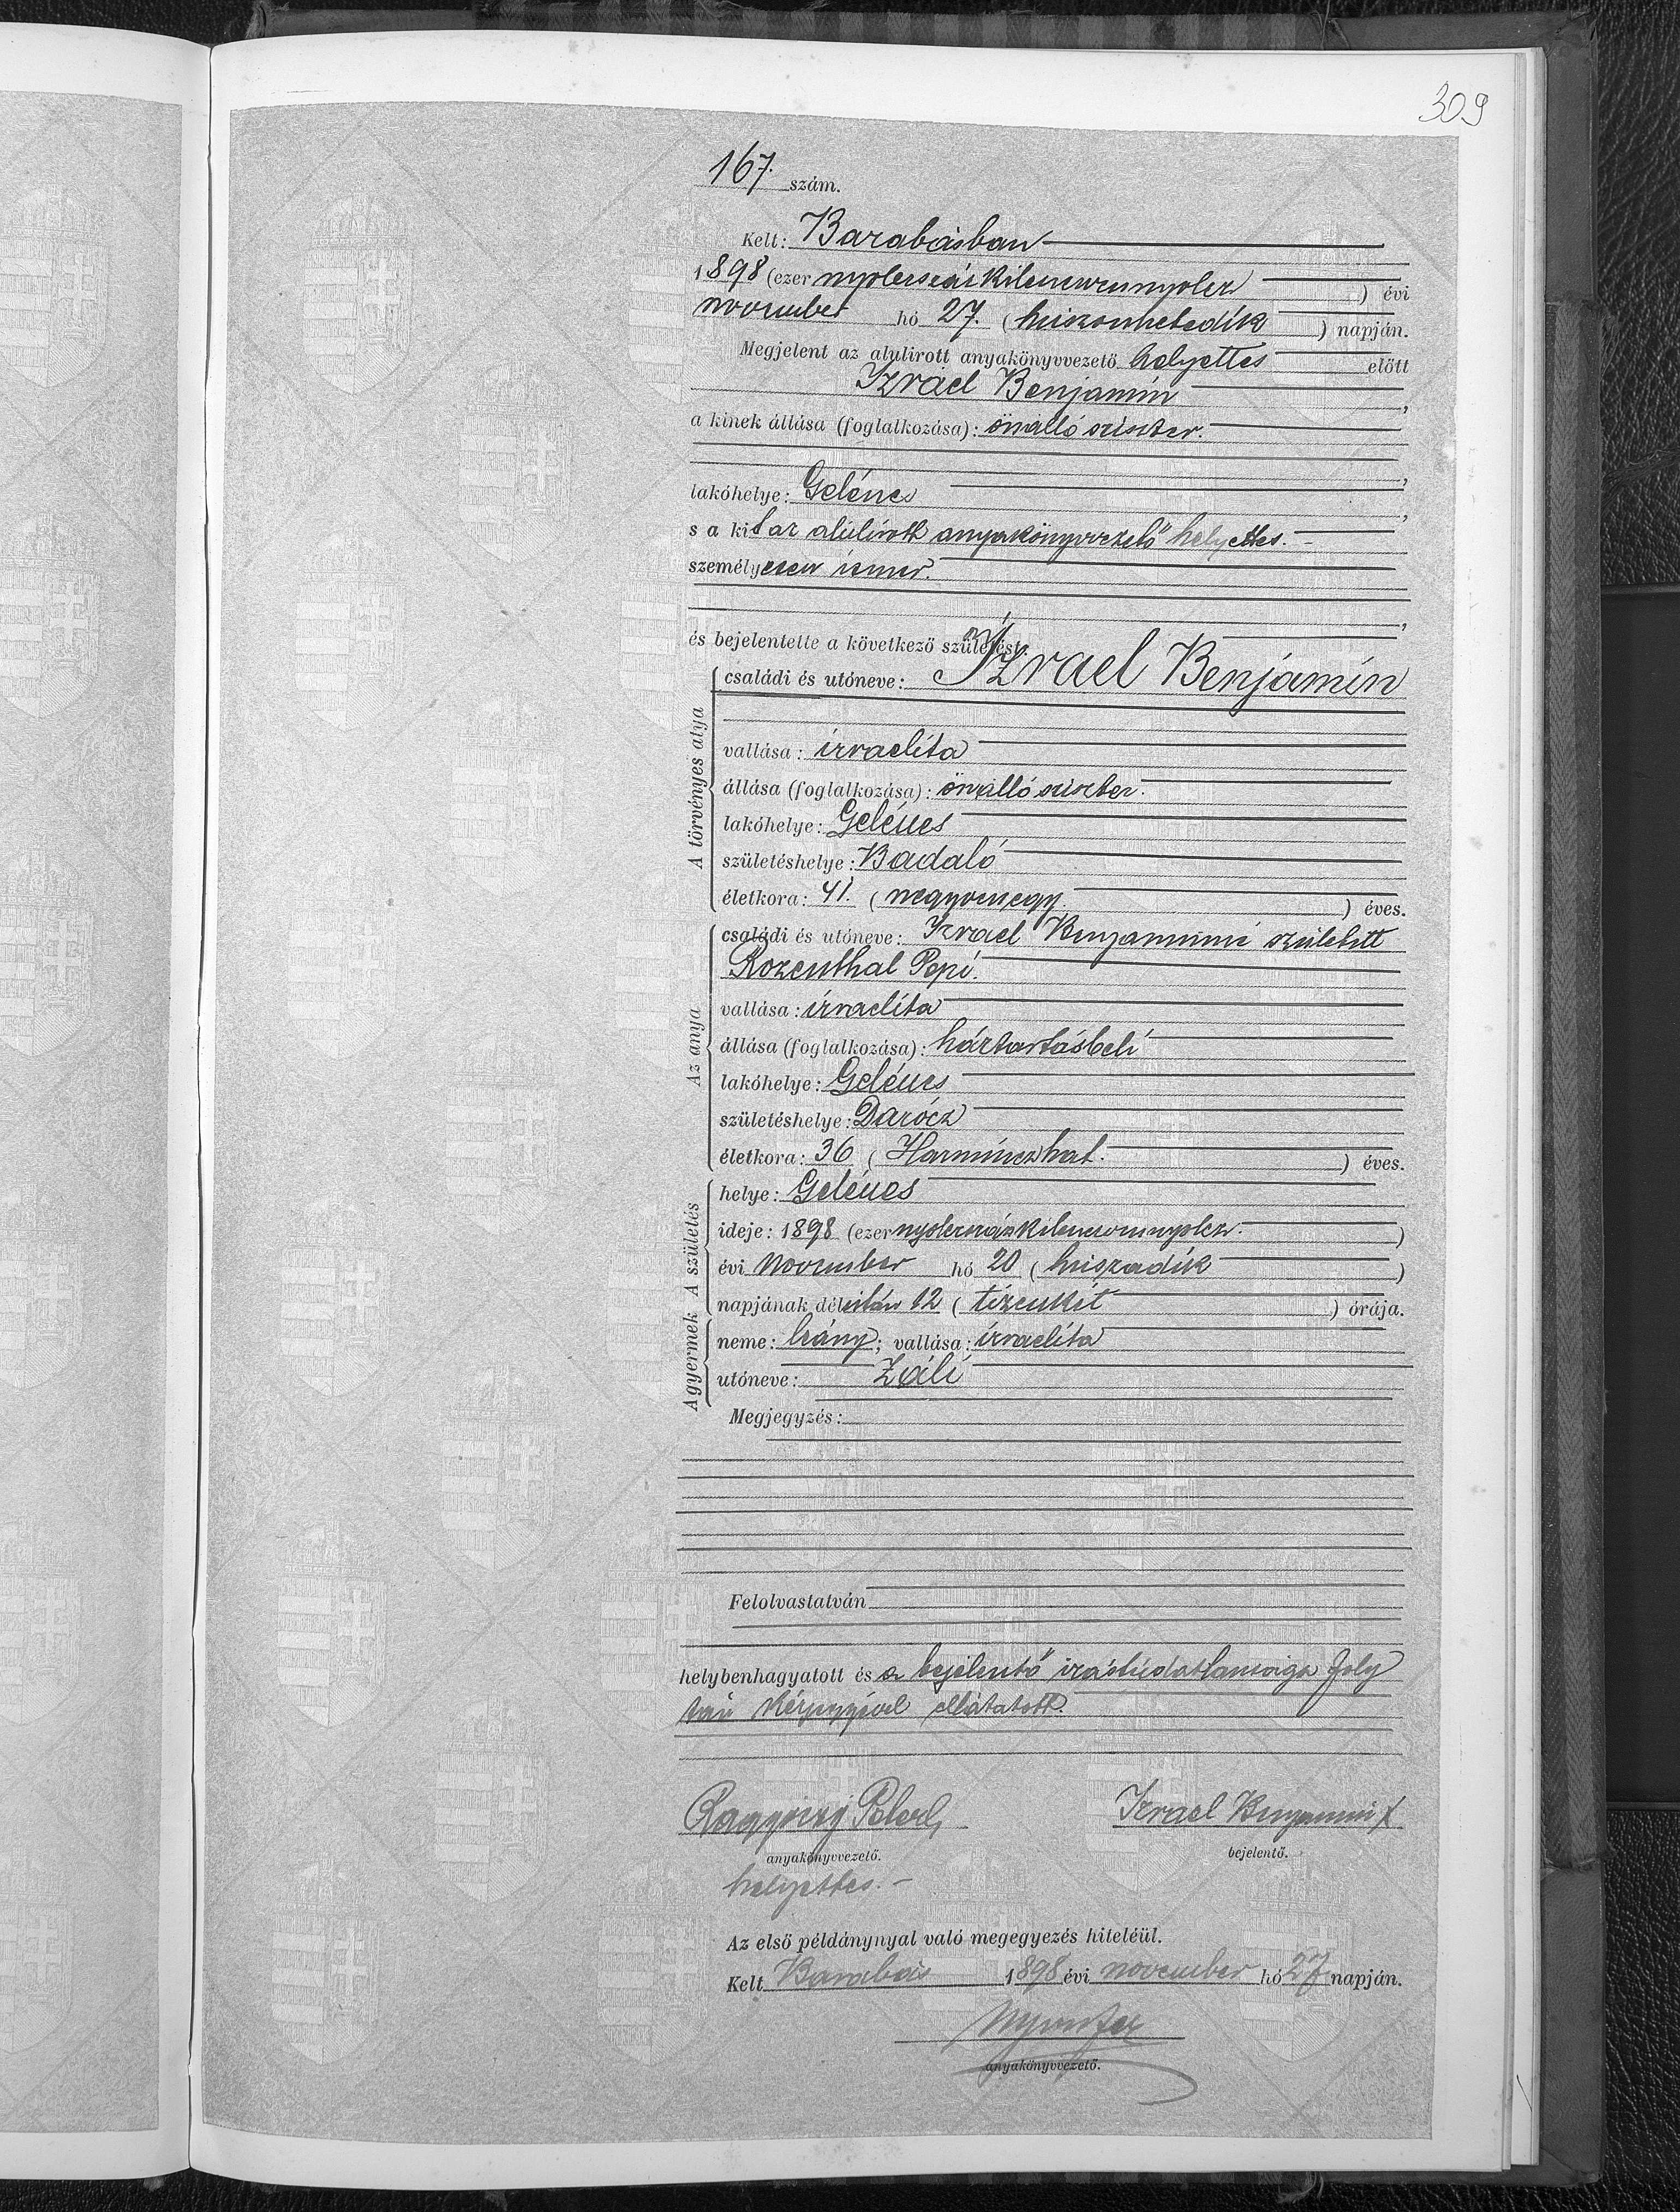 309
167. szám.
Kelt: Barabásban
1898 (ezer nyolcszázkilenczvennyolcz) évi
november hó 27. (huszonhetedik) napján.
Megjelent az alulirott anyakönyvvezető helyettes előtt
Izráel Benjamin,
a kinek állása (foglalkozása): önálló suszter.
lakóhelye: Gelénes,
s a kit az alulírott anyakönyvvezető helyettes.-
személyesen ismer.
és bejelentette a következő születést:
A törvényes atyja
családi és utóneve: Izrael Benjámin
vallása: izraelita
állása (foglalkozása): önálló suszter.
lakóhelye: Gelénes
születéshelye: Badaló
életkora: 41. (negyvenegy) éves.
Az anya
családi és utóneve: Izrael Benjaminné született
Rozenthal Pepi.
vallása: izraelita
állása (foglalkozása): háztartásbeli
lakóhelye: Gelénes
születéshelye: Darócz
életkora: 36 (Harminczhat.) éves.
A születés
helye: Gelénes
ideje: 1898 (ezer nyolczszázkilenczvennyolcz.)
évi November hó 20 (huszadik)
napjának délután 12 (tizenkét) órája.
A gyermek
neme: leány; vallása: izraelita
utóneve: Záli
Megjegyzés:
Felolvastatván
helybenhagyatott és a bejelentő irástudatlansága foly
tán kézjegyével elláttatott.
Izrael Benjamin X
anyakönyvvezető. bejelentő.
helyettes.-
Az első példánynyal való megegyezés hiteléül.
Kelt Barabás 1898 évi november hó 27 napján.
anyakönyvvezető.